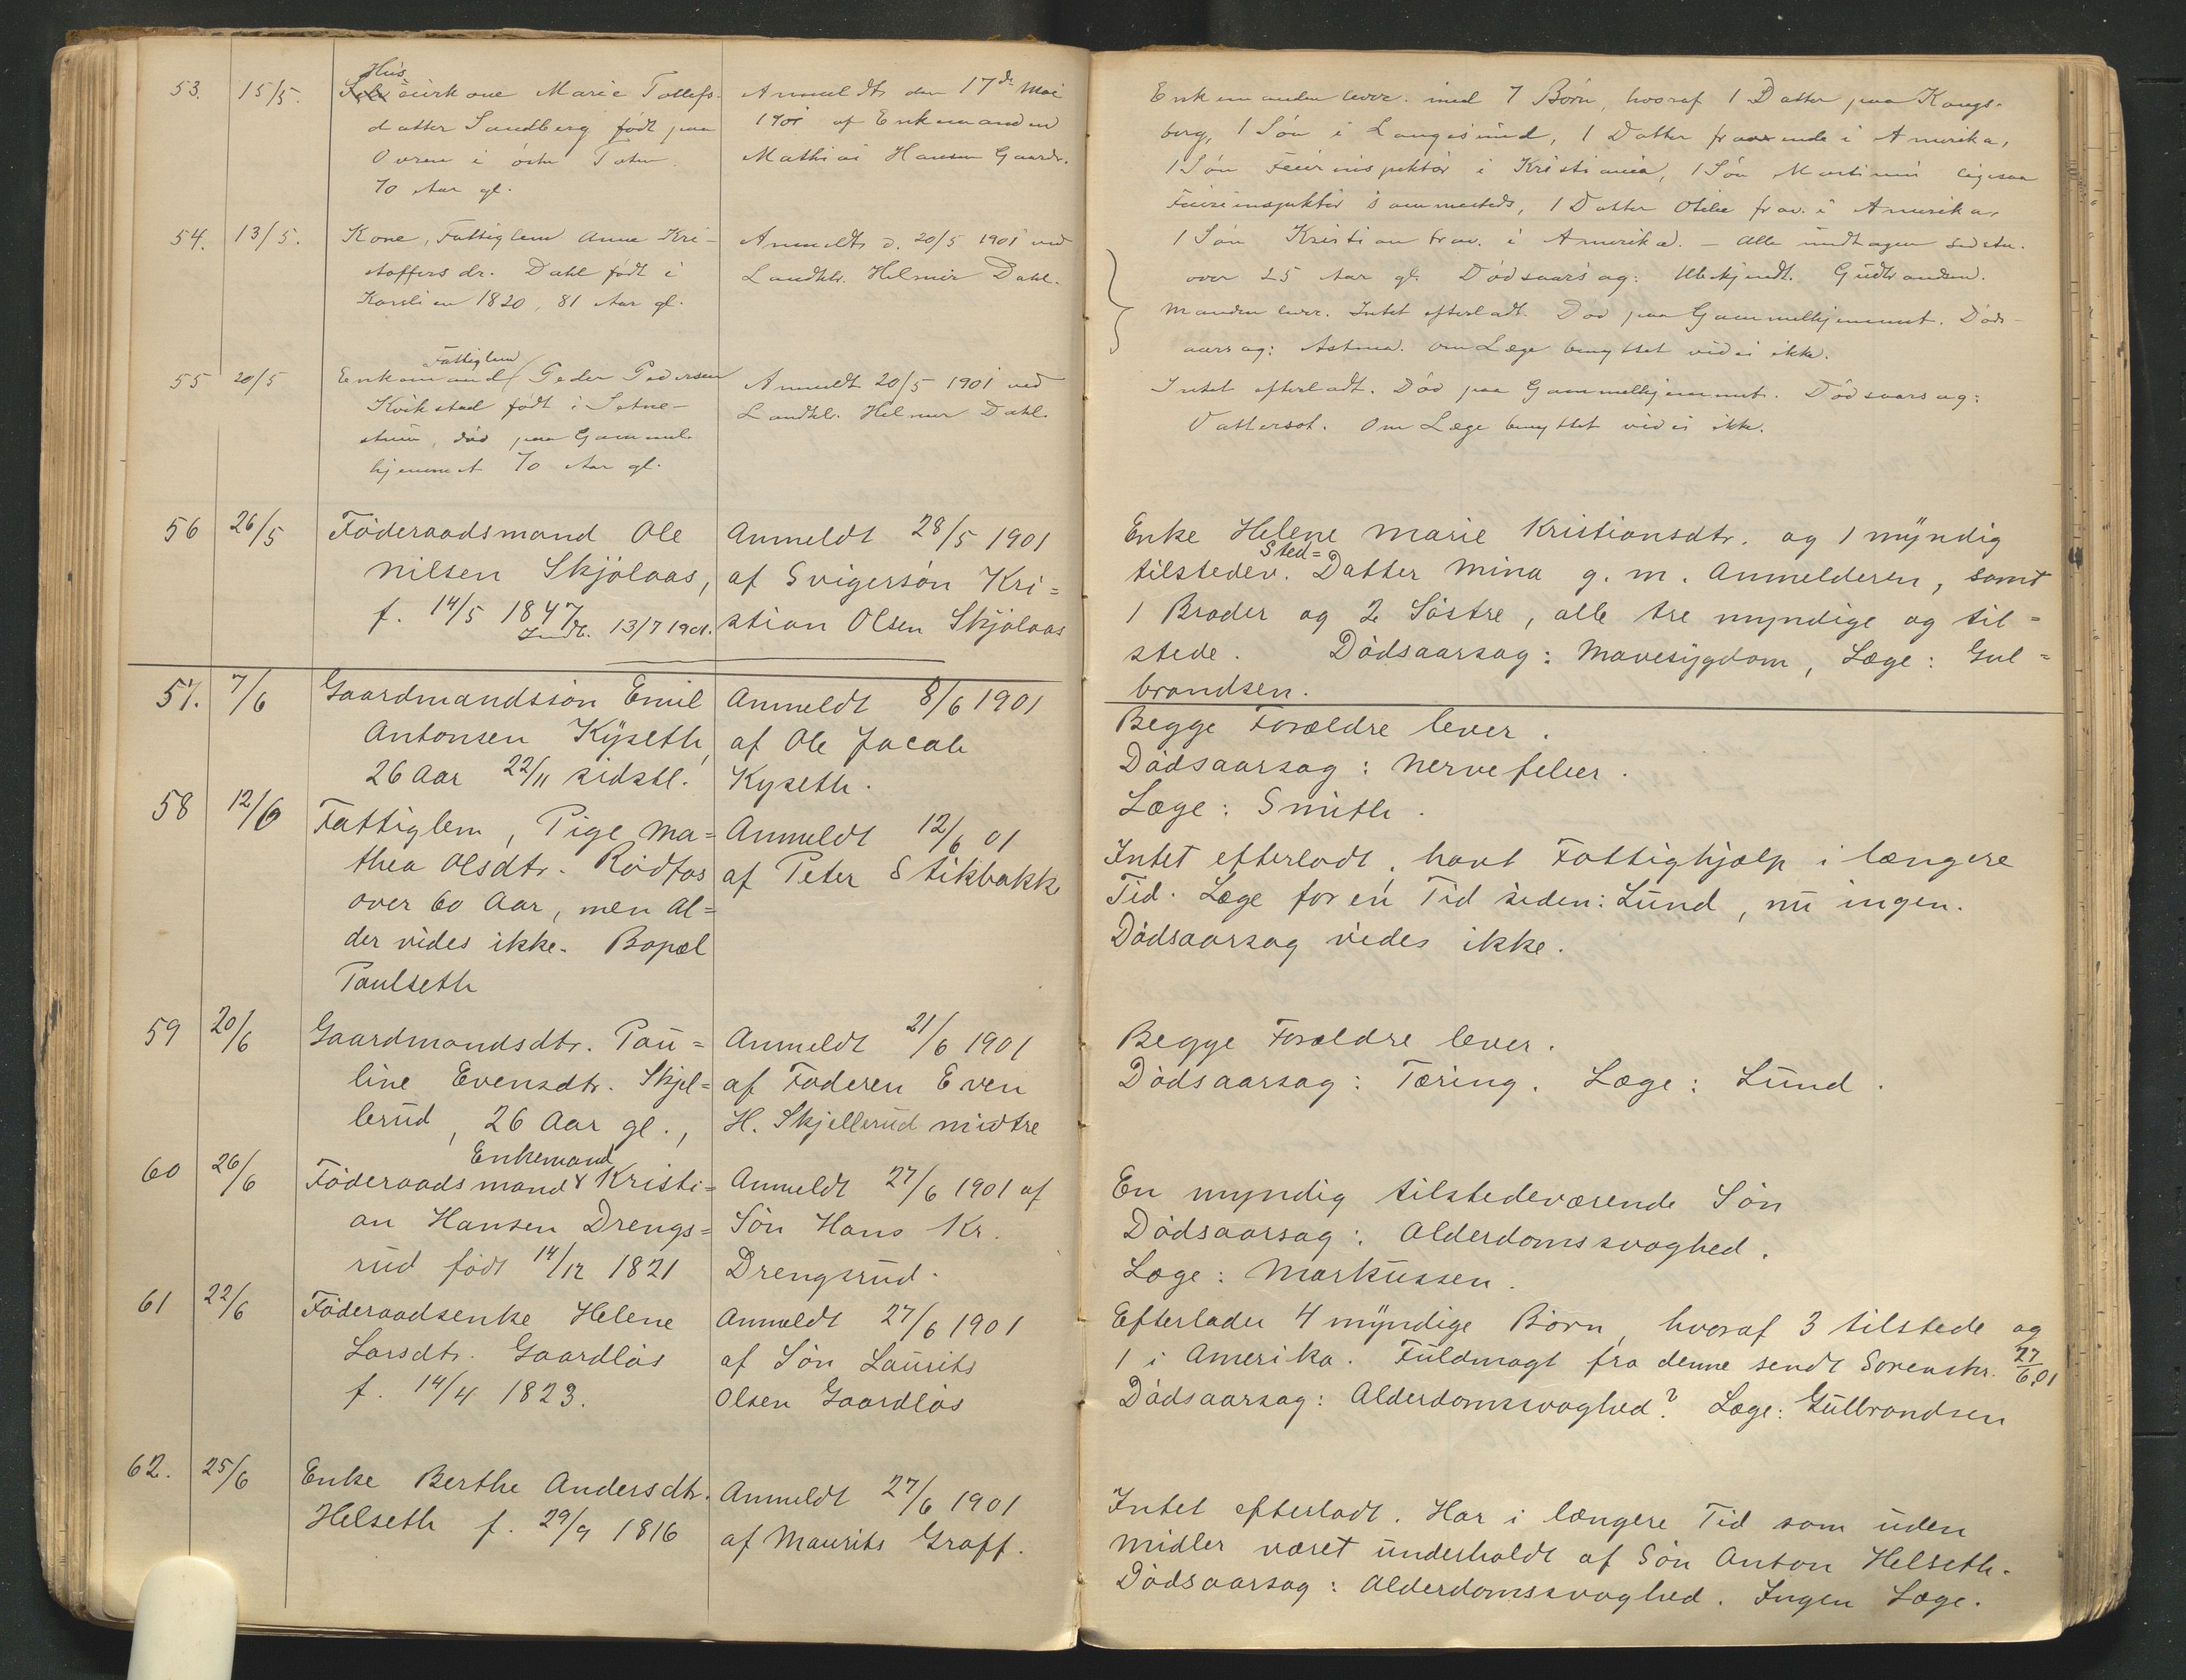 53. 15/5. Hus
eierkone Marie Tollefs-
datter Sandberg født paa
Ovren i østre Toten.
70 Aar gl.
Anmeldt den 17de Mai
1901 af Enkemanden
Mathias Hansen Gaardr.
Enkemanden lever. med 7 Børn, hvoraf 1 Datter paa Kongs-
berg, 1 Søn i Langesund, 1 Datter fraværende i Amerika,
1 Søn Feierinspektør i Kristiania, 1 Søn Martinus ligesaa
Feierinspektør sammesteds, 1 Datter Otilie frav. i Amerika,
1 Søn Kristian frav. i Amerika. – Alle undtagen sidste.
over 25 Aar gl. Dødsaarsag: Ubekjendt. Gudbrandsen.
54. 13/5. Kone, Fattiglem Anne Kri-
stoffersdr. Dahl født i
Karslien 1820, 81 Aar gl.
Anmeldt d. 20/5 1901 ved
Landhdr. Helmer Dahl.
Manden lever. Intet efterladt. Død paa Gammelhjemmet. Døds-
aarsag: Astma. om Læge benyttet vides ikke.
55 20/5 Fattiglem
Enkemand Peder Pedersen
Kvikstad født i Setne-
stuen, død paa Gammel-
hjemmet 70 Aar gl.
Anmeldt 20/5 1901 ved
Landhd. Helmer Dahl.
Intet efterladt. Død paa Gammelhjemmet. Dødsaarsag:
Vattersot. Om Læge benyttet vides ikke.
56 26/5 Føderaadsmand Ole
Nilsen Skjølaas,
f. 14/5 1847
Indb. 13/7 1901.
Anmeldt 28/5 1901
af Svigersøn Kri=
stian Olsen Skjølaas
Enke Helene Marie Kristiansdtr. og 1 myndig
Sted=
tilstedev. Datter Mina g. m. Anmelderen, samt
1 Broder og 2 Søstre, alle tre myndige og til=
stede. Dødsaarsag: Mavesygdom, Læge: Gul=
brandsen.
57. 7/6 Gaardmandssøn Emil
Antonsen Kyseth,
26 Aar 22/11 sidstl.
Anmeldt 8/6 1901
af Ole Jacob
Kyseth.
Begge Forældre lever.
Dødsaarsag: Nervefeber.
Læge: Smith.
58 12/6 Fattiglem, Pige Ma=
thea Olsdtr. Rødfos
over 60 Aar, men Al=
der vides ikke. Bopæl
Paulseth
Anmeldt 12/6 01
af Peter Stikbakke
Intet efterladt, havt Fattighjælp i længere
Tid. Læge for en Tid siden: Lund, nu ingen.
Dødsaarsag vides ikke.
59 20/6 Gaardmandsdtr. Pau=
line Evensdtr. Skjel=
lerud, 26 Aar gl.,
Anmeldt 21/6 1901
af Faderen Even
H. Skjellerud midtre
Begge Forældre lever.
Dødsaarsag: Tæring. Læge: Lund.
60 26/6 Enkemand
Føderaadsmand Kristi=
an Hansen Drengs=
rud født 14/12 1821
Anmeldt 27/6 1901 af
Søn Hans Kr.
Drengsrud.
En myndig tilstedeværende Søn
Dødsaarsag: Alderdomssvaghed.
Læge: Markussen.
61 22/6 Føderaadsenke Helene
Larsdtr. Gaardløs
f. 14/4 1823.
Anmeldt 27/6 1901
af Søn Laurits
Olsen Gaardløs
Efterlader 4 myndige Børn, hvoraf 3 tilstede og
1 i Amerika. Fuldmagt fra denne sendt Sorenskr. 27/6 01
Dødsaarsag: Alderdomssvaghed? Læge: Gulbrandsen
62. 25/6 Enke Berthe Andersdtr.
Helseth f. 29/9 1816
Anmeldt 27/6 1901
af Maurits Graff.
Intet efterladt. Har i længere Tid som uden
Midler været underholdt af Søn Anton Helseth.
Dødsaarsag: Alderdomssvaghed. Ingen Læge.